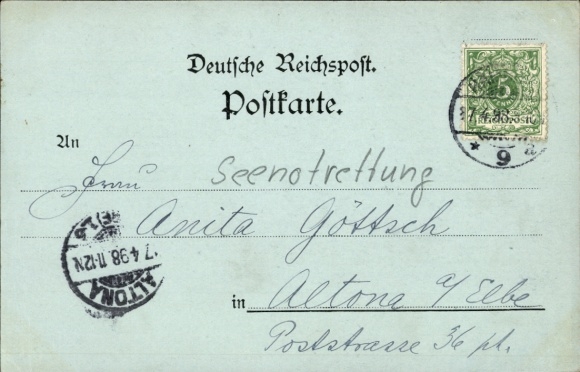 Deutsche Reichspost.
Postkarte.
An
Frau Seenotrettung
Anita Göttsch
in Altona a/Elbe
Poststrasse 36 pt.
5
REICHSPOST
7.4.98
9a
ALTONA
7.4.98 11-12N